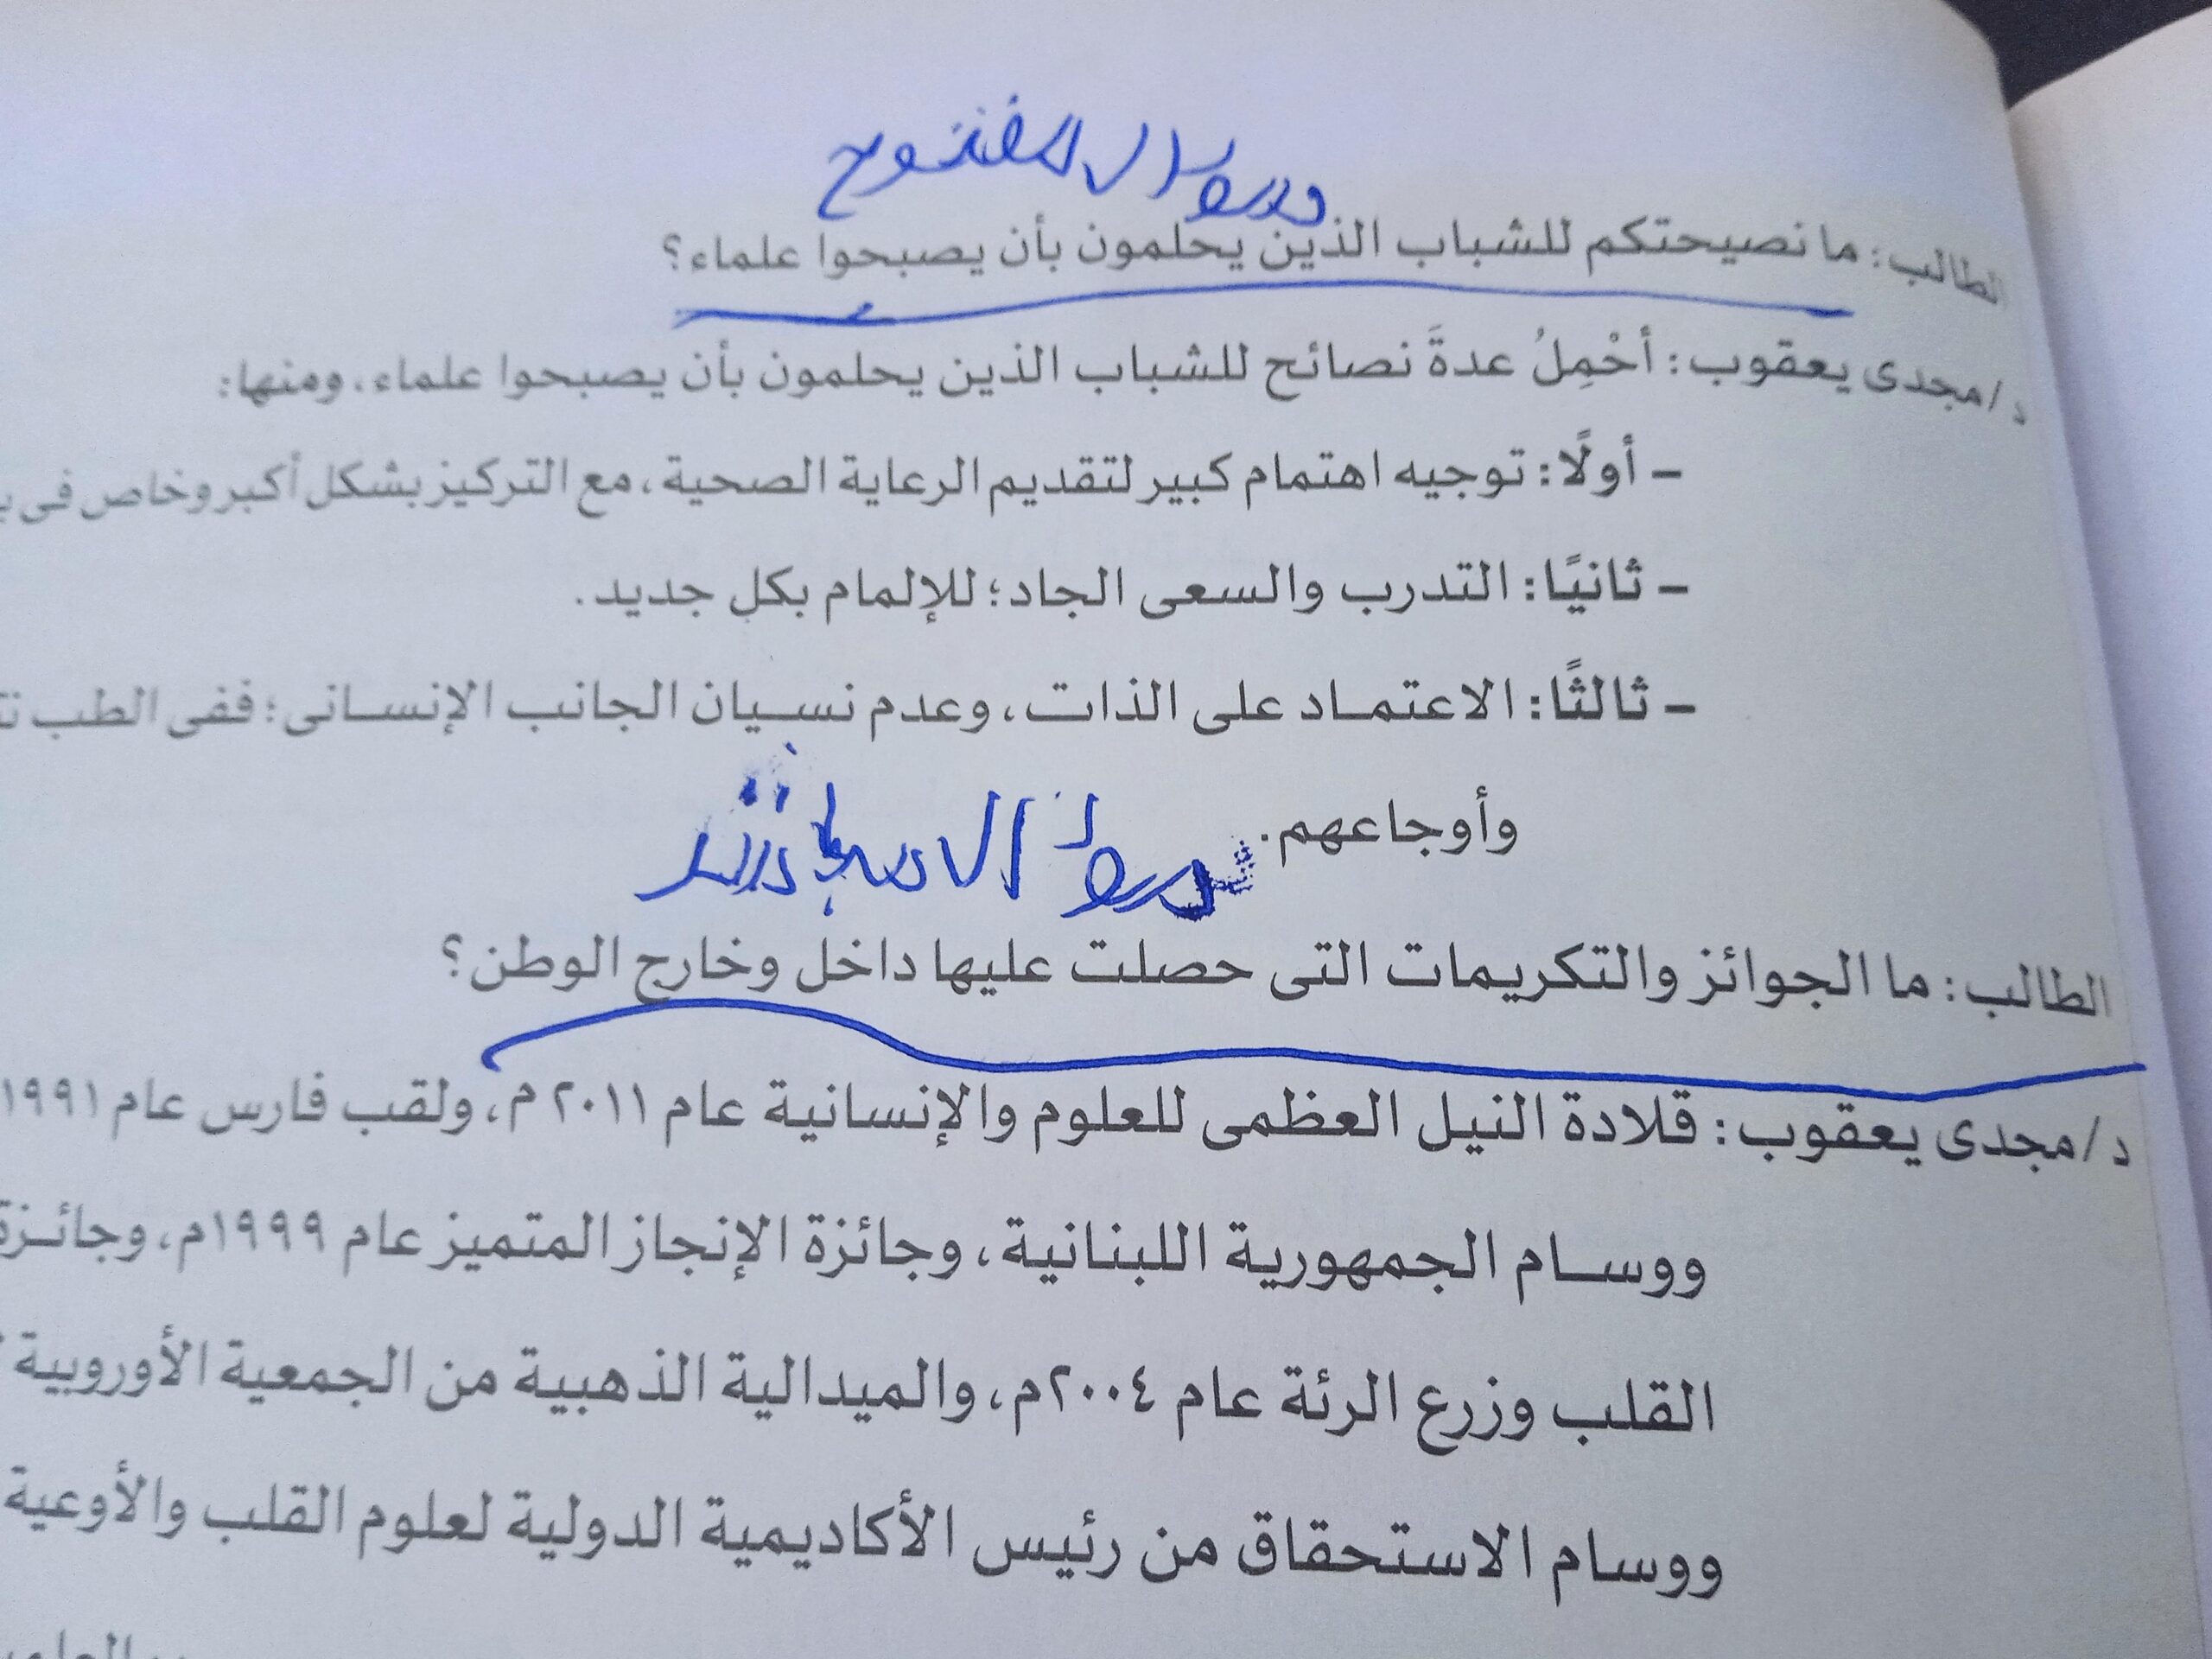 المفتوح
الطالب: ما نصيحتكم للشباب الذين يحلمون بأن يصبحوا علماء؟
د/مجدى يعقوب: أحْمِلُ عدةَ نصائح للشباب الذين يحلمون بأن يصبحوا علماء، ومنها:
– أولًا: توجيه اهتمام كبير لتقديم الرعاية الصحية، مع التركيز بشكل أكبر وخاص فى
– ثانيًا: التدرب والسعى الجاد؛ للإلمام بكل جديد.
– ثالثًا: الاعتماد على الذات، وعدم نسيان الجانب الإنسانى؛ ففى الطب
وأوجاعهم.
الطالب: ما الجوائز والتكريمات التى حصلت عليها داخل وخارج الوطن؟
د/مجدى يعقوب: قلادة النيل العظمى للعلوم والإنسانية عام ٢٠١١م، ولقب فارس عام ١٩٩١
ووسام الجمهورية اللبنانية، وجائزة الإنجاز المتميز عام ١٩٩٩م، وجائزة
القلب وزرع الرئة عام ٢٠٠٤م، والميدالية الذهبية من الجمعية الأوروبية
ووسام الاستحقاق من رئيس الأكاديمية الدولية لعلوم القلب والأوعية